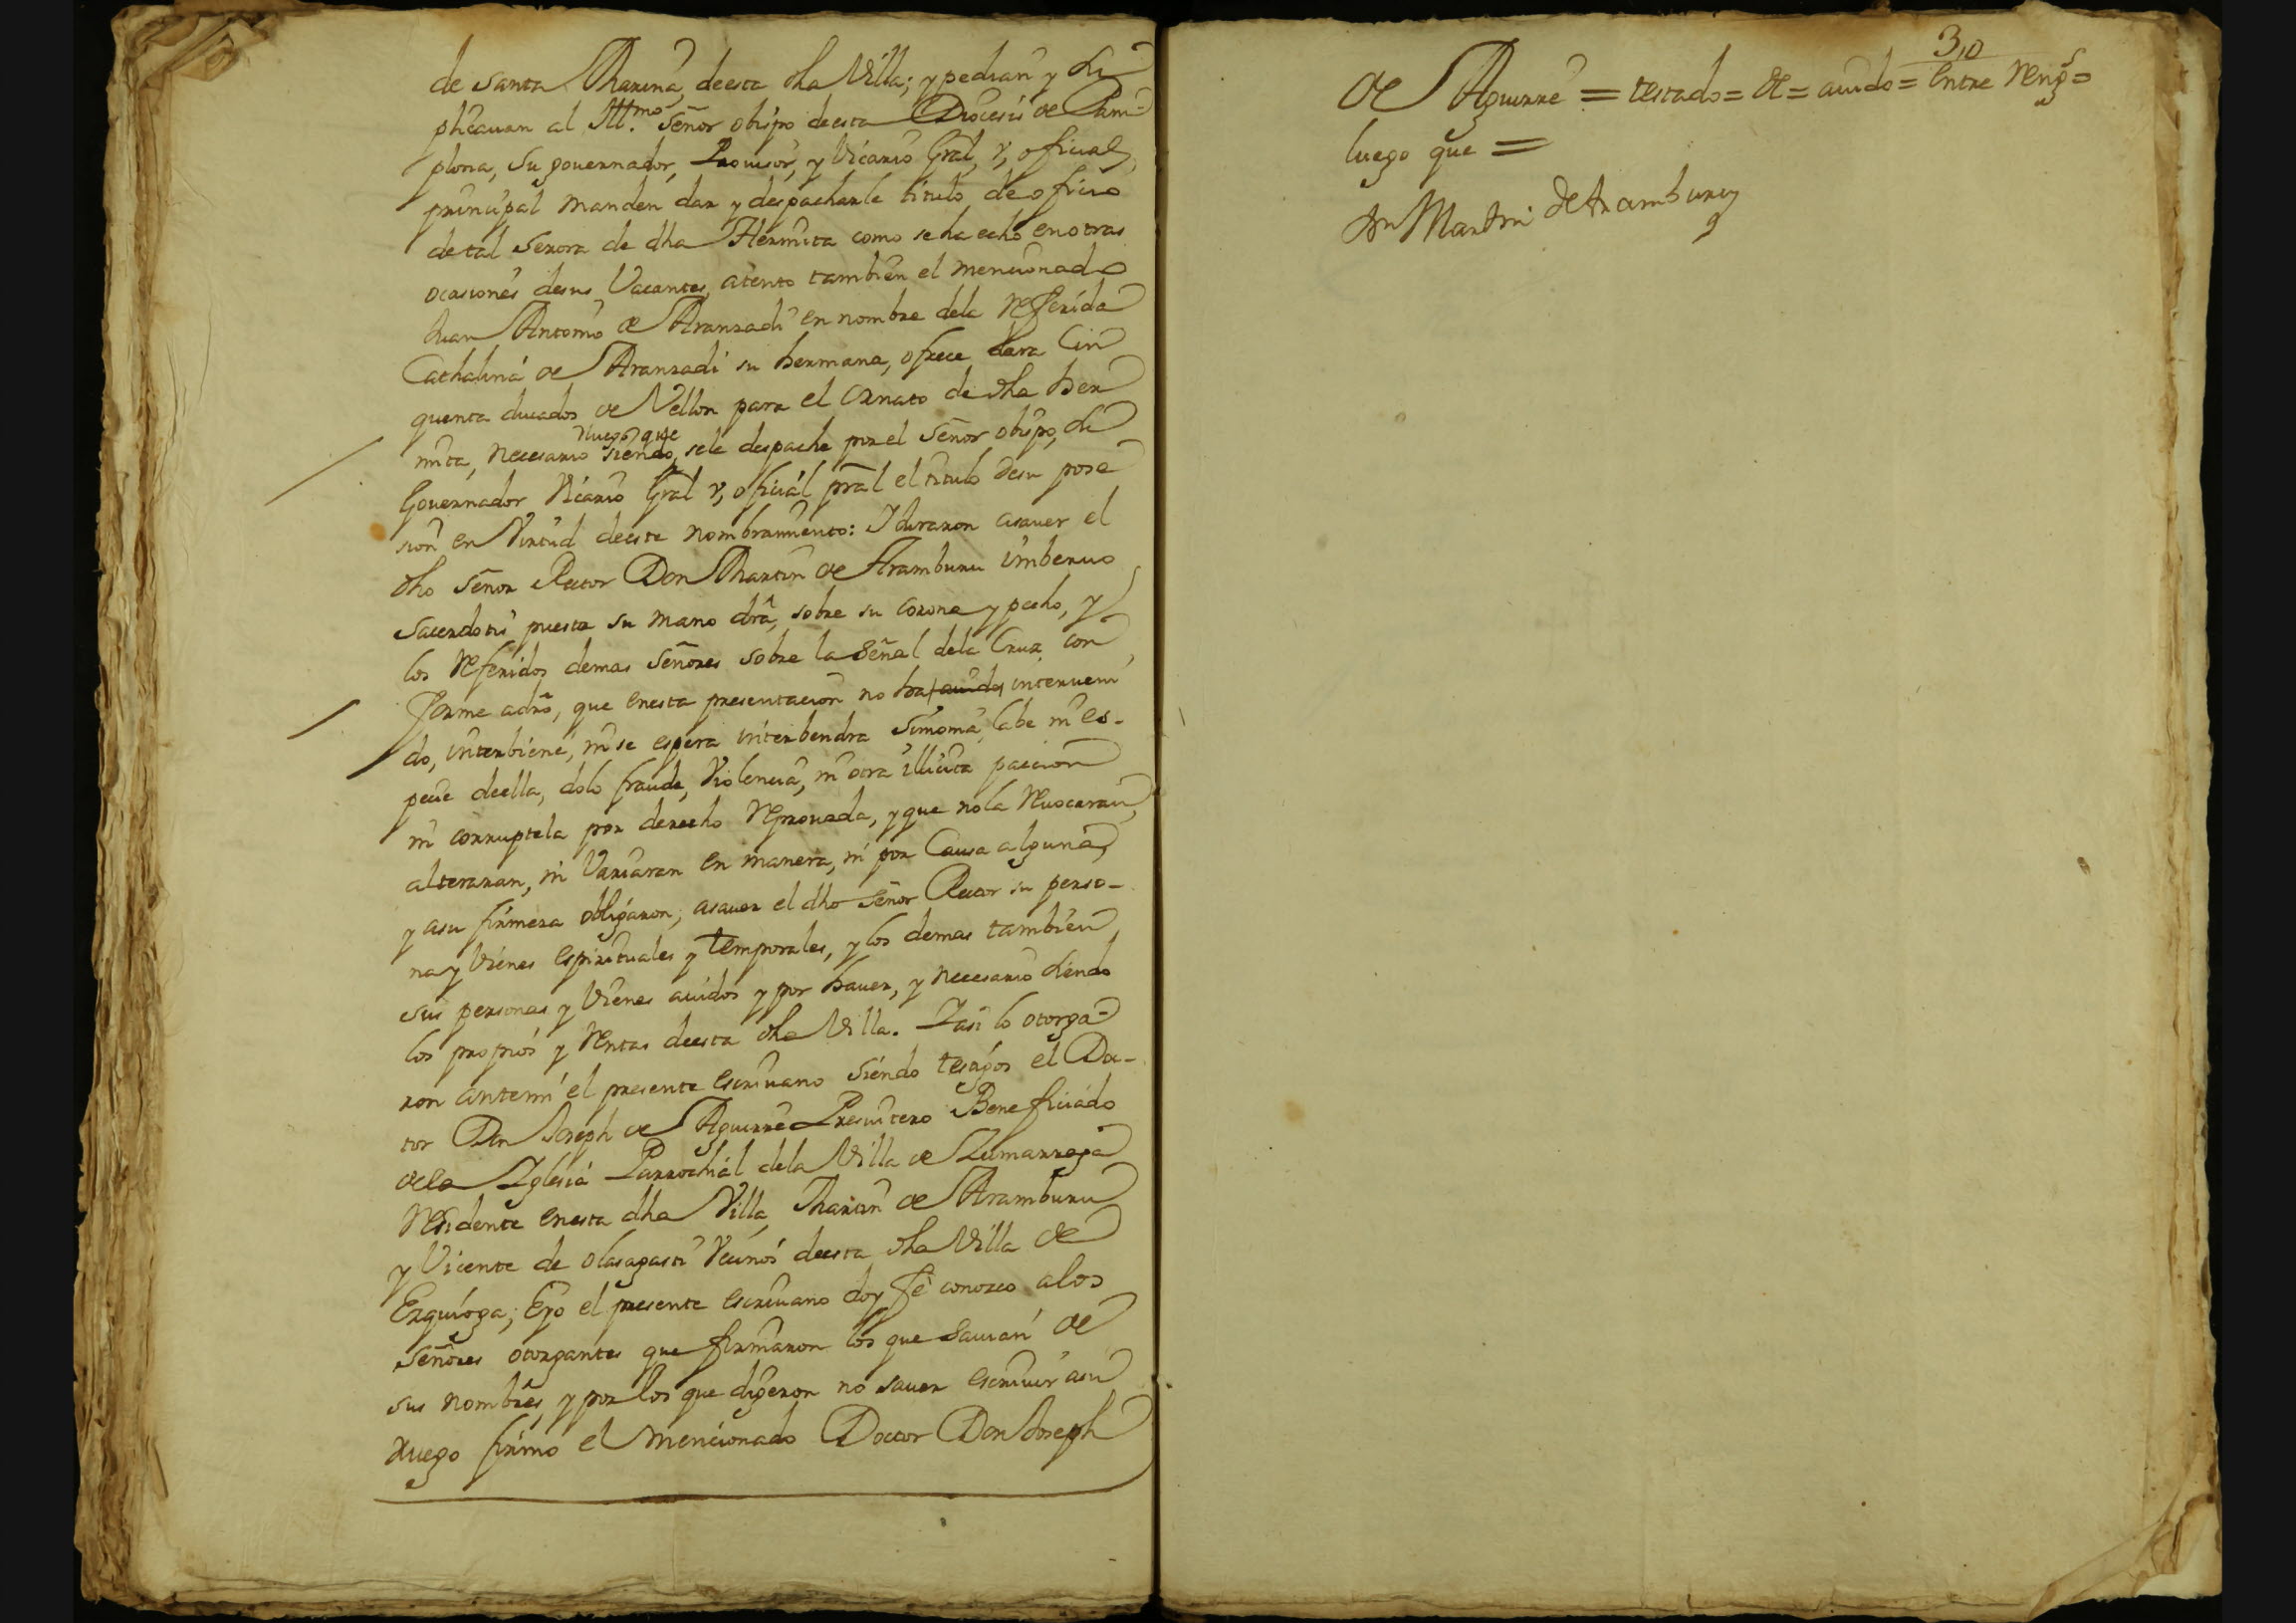 de Santa Marina, deesta dha Villa; y pedian y su
plicauan al Illmo. Señor obispo deesta Diocesis de Pam-
plona, su gouernador, Prouisor, y Vicario Gral, y, oficial
principal manden dar y despacharle titulo de oficio
de tal Serora de dha Hermita como se ha echo en otras
ocasiones de sus Vacantes, atento tambien el mencionado
Juan Antonio de Aranzadi en nombre dela Referida
Cathalina de Aranzadi su hermana, ofrece dara Cin
quenta ducados de Vellon para el Ornato de dha her
luego que
mita, necesario siendo, sele despache por el Señor obispo, su
Gouernador Vicario Gral y, oficial pral el titulo desu pose
sion en Virtud deeste nombramiento: I juraron asauer el
dho Señor Rector Don Martin de Aramburu imberuo
Sacerdotis puesta su mano dra, sobre su corona y pecho, y
los Referidos demas Señores sobre la Señal dela Cruz con
forme adro, que enesta presentacion no ha auido interueni
do, interbiene, ni se espera interbendra Simonia, labe ni es-
pecie deella, dolo fraude, Violencia, ni otra illicita paccion
ni corruptela por derecho Reprouada, y que no la Reuocaran,
alteraran, ni Variaran en manera, ni por Causa alguna,
y asu firmeza obligaron, asauer el dho Señor Rector su perso-
na y Vienes espirituales y temporales, y los demas tambien
sus personas y Vienes auidos y por hauer, y necesario siendo
los propios y Rentas deesta dha Villa. I asi lo otorga-
ron antemi el presente escriuano siendo testigos el Doc-
tor Don Joseph de Aguirre Presuitero Beneficiado
dela Iglesia Parrochial dela Villa de Zumarraga
Residente enesta dha Villa, Martin de Aramburu
y Vicente de Olasagasti Vecinos deesta dha Villa de
Ezquioga; E yo el presente escriuano doy fe conozco alos
señores otorgantes que firmaron los que sauian de
sus nombres, y por los que digeron no sauer escriuir asu
Ruego firmo el mencionado Doctor Don Joseph
30
de Aguirre = testado = de = auido = Entre Rengs =
luego que =
Dn Martin de Aramburu